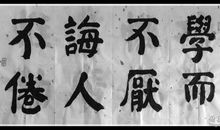 學而
不厭
誨人
不倦